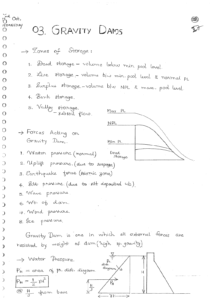 03. GRAVITY DAMS
→ Zones of Storage:
1. Dead storage - volume below min. pool level
2. Live storage - volume b/w min. pool level & normal
3. Surplus storage - volume b/w NPL & max. pool level
4. Bank storage
5. Valley storage
→ Forces Acting on Gravity Dam:
1. Water pressure (normal)
2. Uplift pressure (due to seepage)
3. Earthquake force (seismic force)
4. Silt pressure (due to silt deposited u/s)
5. Wave pressure
6. Wt. of dam
7. Wind pressure
8. Ice pressure
Gravity Dam is one in which all external forces are
resisted by weight of dam
→ Water Pressure
from base